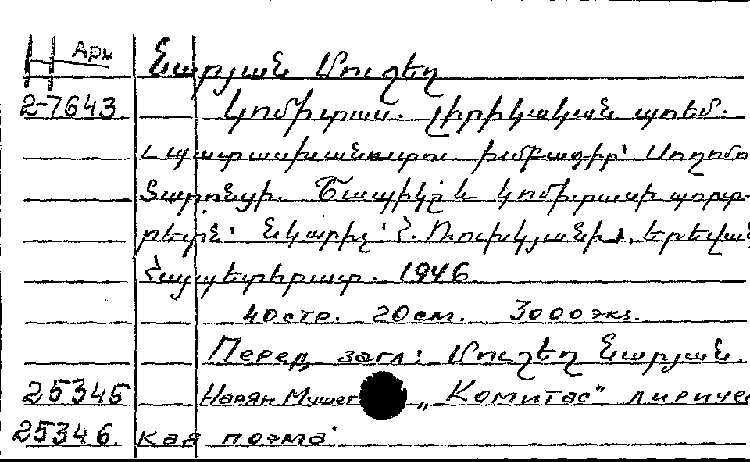 Арм
Նարյան Մուշեղ
2-7643 Կոմիտաս. լիրիկական պոեմ.
Պատասխանատու խմբագիր՝ Սողոմո
Տարոնցի. Շապիկը և կոմիտասի պորտ-
րեն՝ նկարիչ՝ Հ. Երևան
Հայպետհրատ. 1946
40стр. 20см. 3000экз.
Перед загл: Մուշեղ Նարյան.
25345 Нарян Мушег „Комитас" лиричес
25346. кая поэма